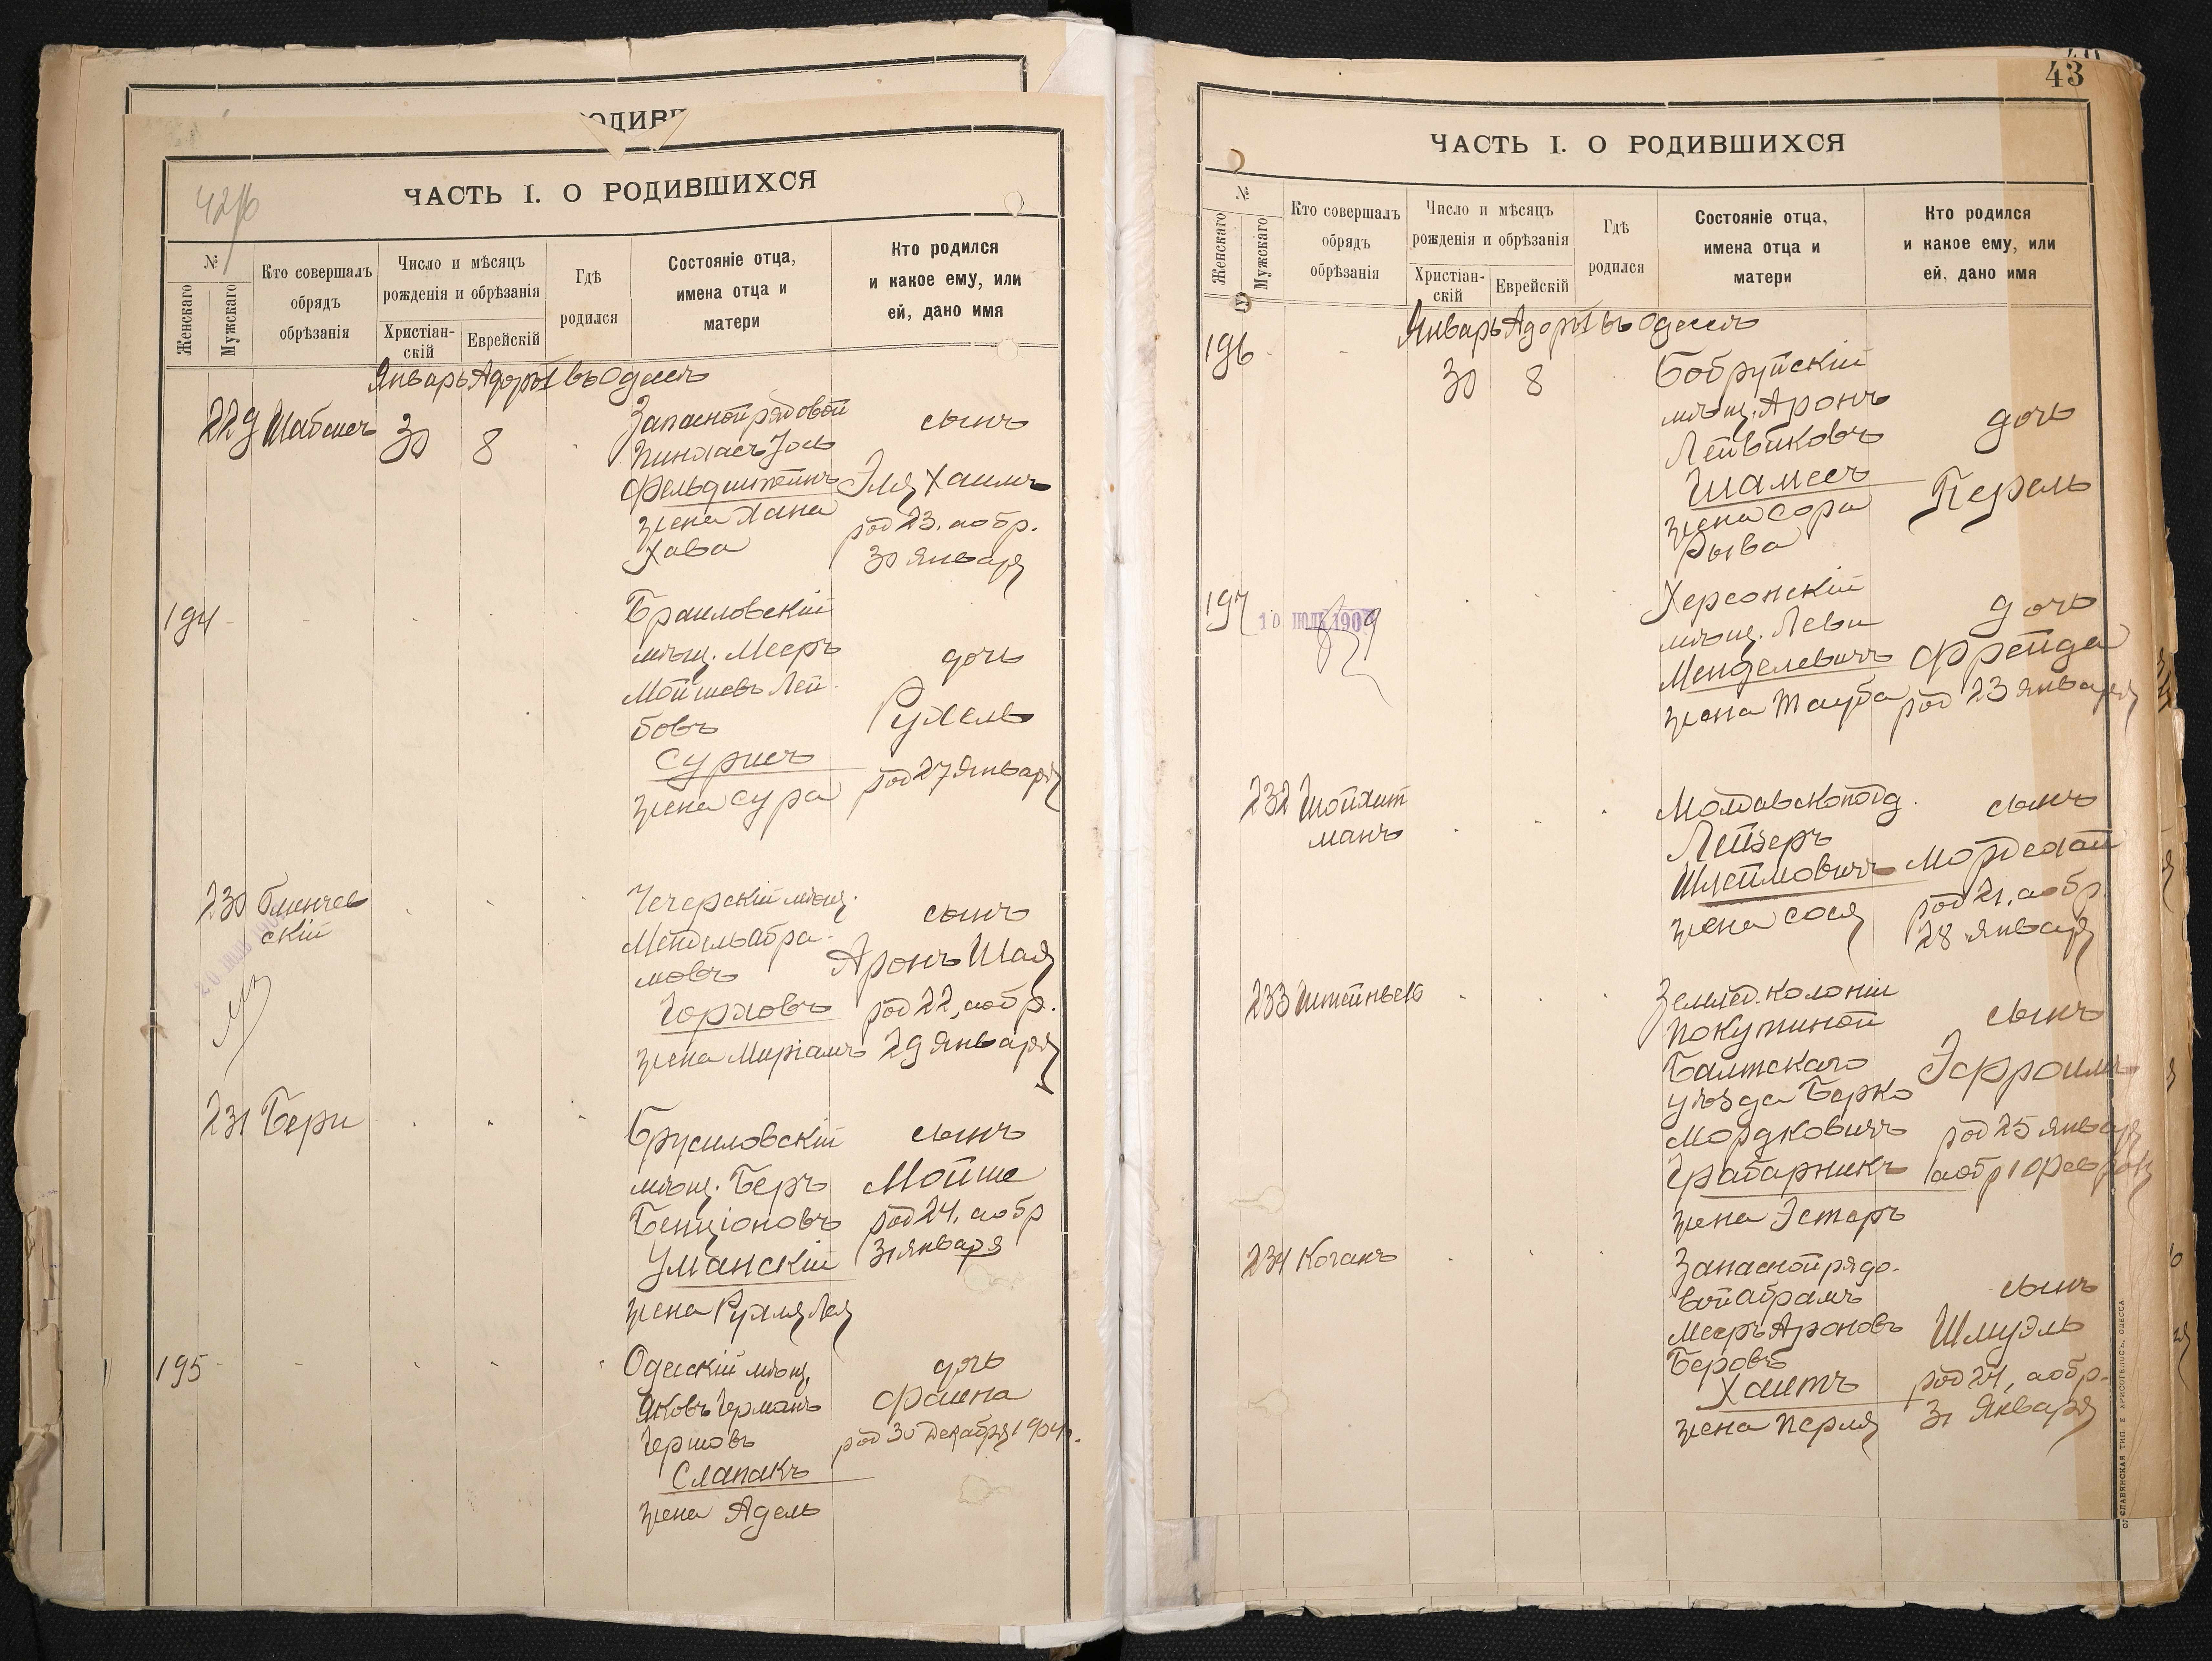 ЧАСТЬ I. О РОДИВШИХСЯ
№
Женскаго
Мужскаго
Кто совершалъ
обрядъ
обрѣзанія
Число и мѣсяцъ
рожденія и обрѣзанія
Христіан-
скій
Еврейскій
Гдѣ
родился
Состояніе отца,
имена отца и
матери
Кто родился
и какое ему, или
ей, дано имя
Январь Адоръ I въ Одессѣ
229
30 8
Запасной рядовой
Пинхасъ Іось
Фельдштейнъ
жена Хана
Хава
сынъ
Эля Хаимъ
род 23, а обр.
30 Января
194
Браиловскій
мѣщ. Мееръ
Мойшевъ Лей
бовъ
Сурисъ
жена Сура
дочь
Рухель
род 27 Января
230
скій
Чечерскій мѣщ.
Мендель Абра-
мовъ
Горловъ
жена Миріамъ
сынъ
Аронъ Шая
род 22, а обр.
29 Января
231 Бери
Брусиловскій
мѣщ. Беръ
Бенціоновъ
Уманскій
жена Рухля Лея
сынъ
Мойше
род 24, а обр
31 Января
195
Одесскій мѣщ.
Яковъ Германъ
Гершовъ
Слапакъ
жена Адель
дочь
Фаина
род 30 Декабря 1904 г.
43
ЧАСТЬ I. О РОДИВШИХСЯ
№
Женскаго
Мужскаго
Кто совершалъ
обрядъ
обрѣзанія
Число и мѣсяцъ
рожденія и обрѣзанія
Христіан-
скій
Еврейскій
Гдѣ
родился
Состояніе отца,
имена отца и
матери
Кто родился
и какое ему, или
ей, дано имя
Январь Адоръ I въ Одессѣ
196
30 8
Бобруйскій
мѣщ. Аронъ
Лейвиковъ
Шамесъ
жена Сора
Рыва
дочь
Перель
197
Херсонскій
мѣщ. Леви
Менделевичъ
жена Тауба
дочь
Фрейда
род 23 Января
232 Шойхит
манъ
Молдавскоподд.
Лейзеръ
Шлеймовичъ
жена Сося
сынъ
Мордехай
род 21, а обр.
28 Января
233
Землед. колоніи
Покутиной
Балтскаго
уѣзда Берко
Мордковичъ
Грабарникъ
жена Эстеръ
сынъ
Эфроимъ
род 25 Января
а обр 1 Февраля
234 Коганъ
Запасной рядо-
вой Абрамъ
Мееръ Ароновъ
Беровъ
Хаитъ
жена Перля
сынъ
Шмуэль
род 24, а обр.
31 Января
СЛАВЯНСКАЯ ТИП. Е. ХРИСОГЕЛОСЪ, ОДЕССА